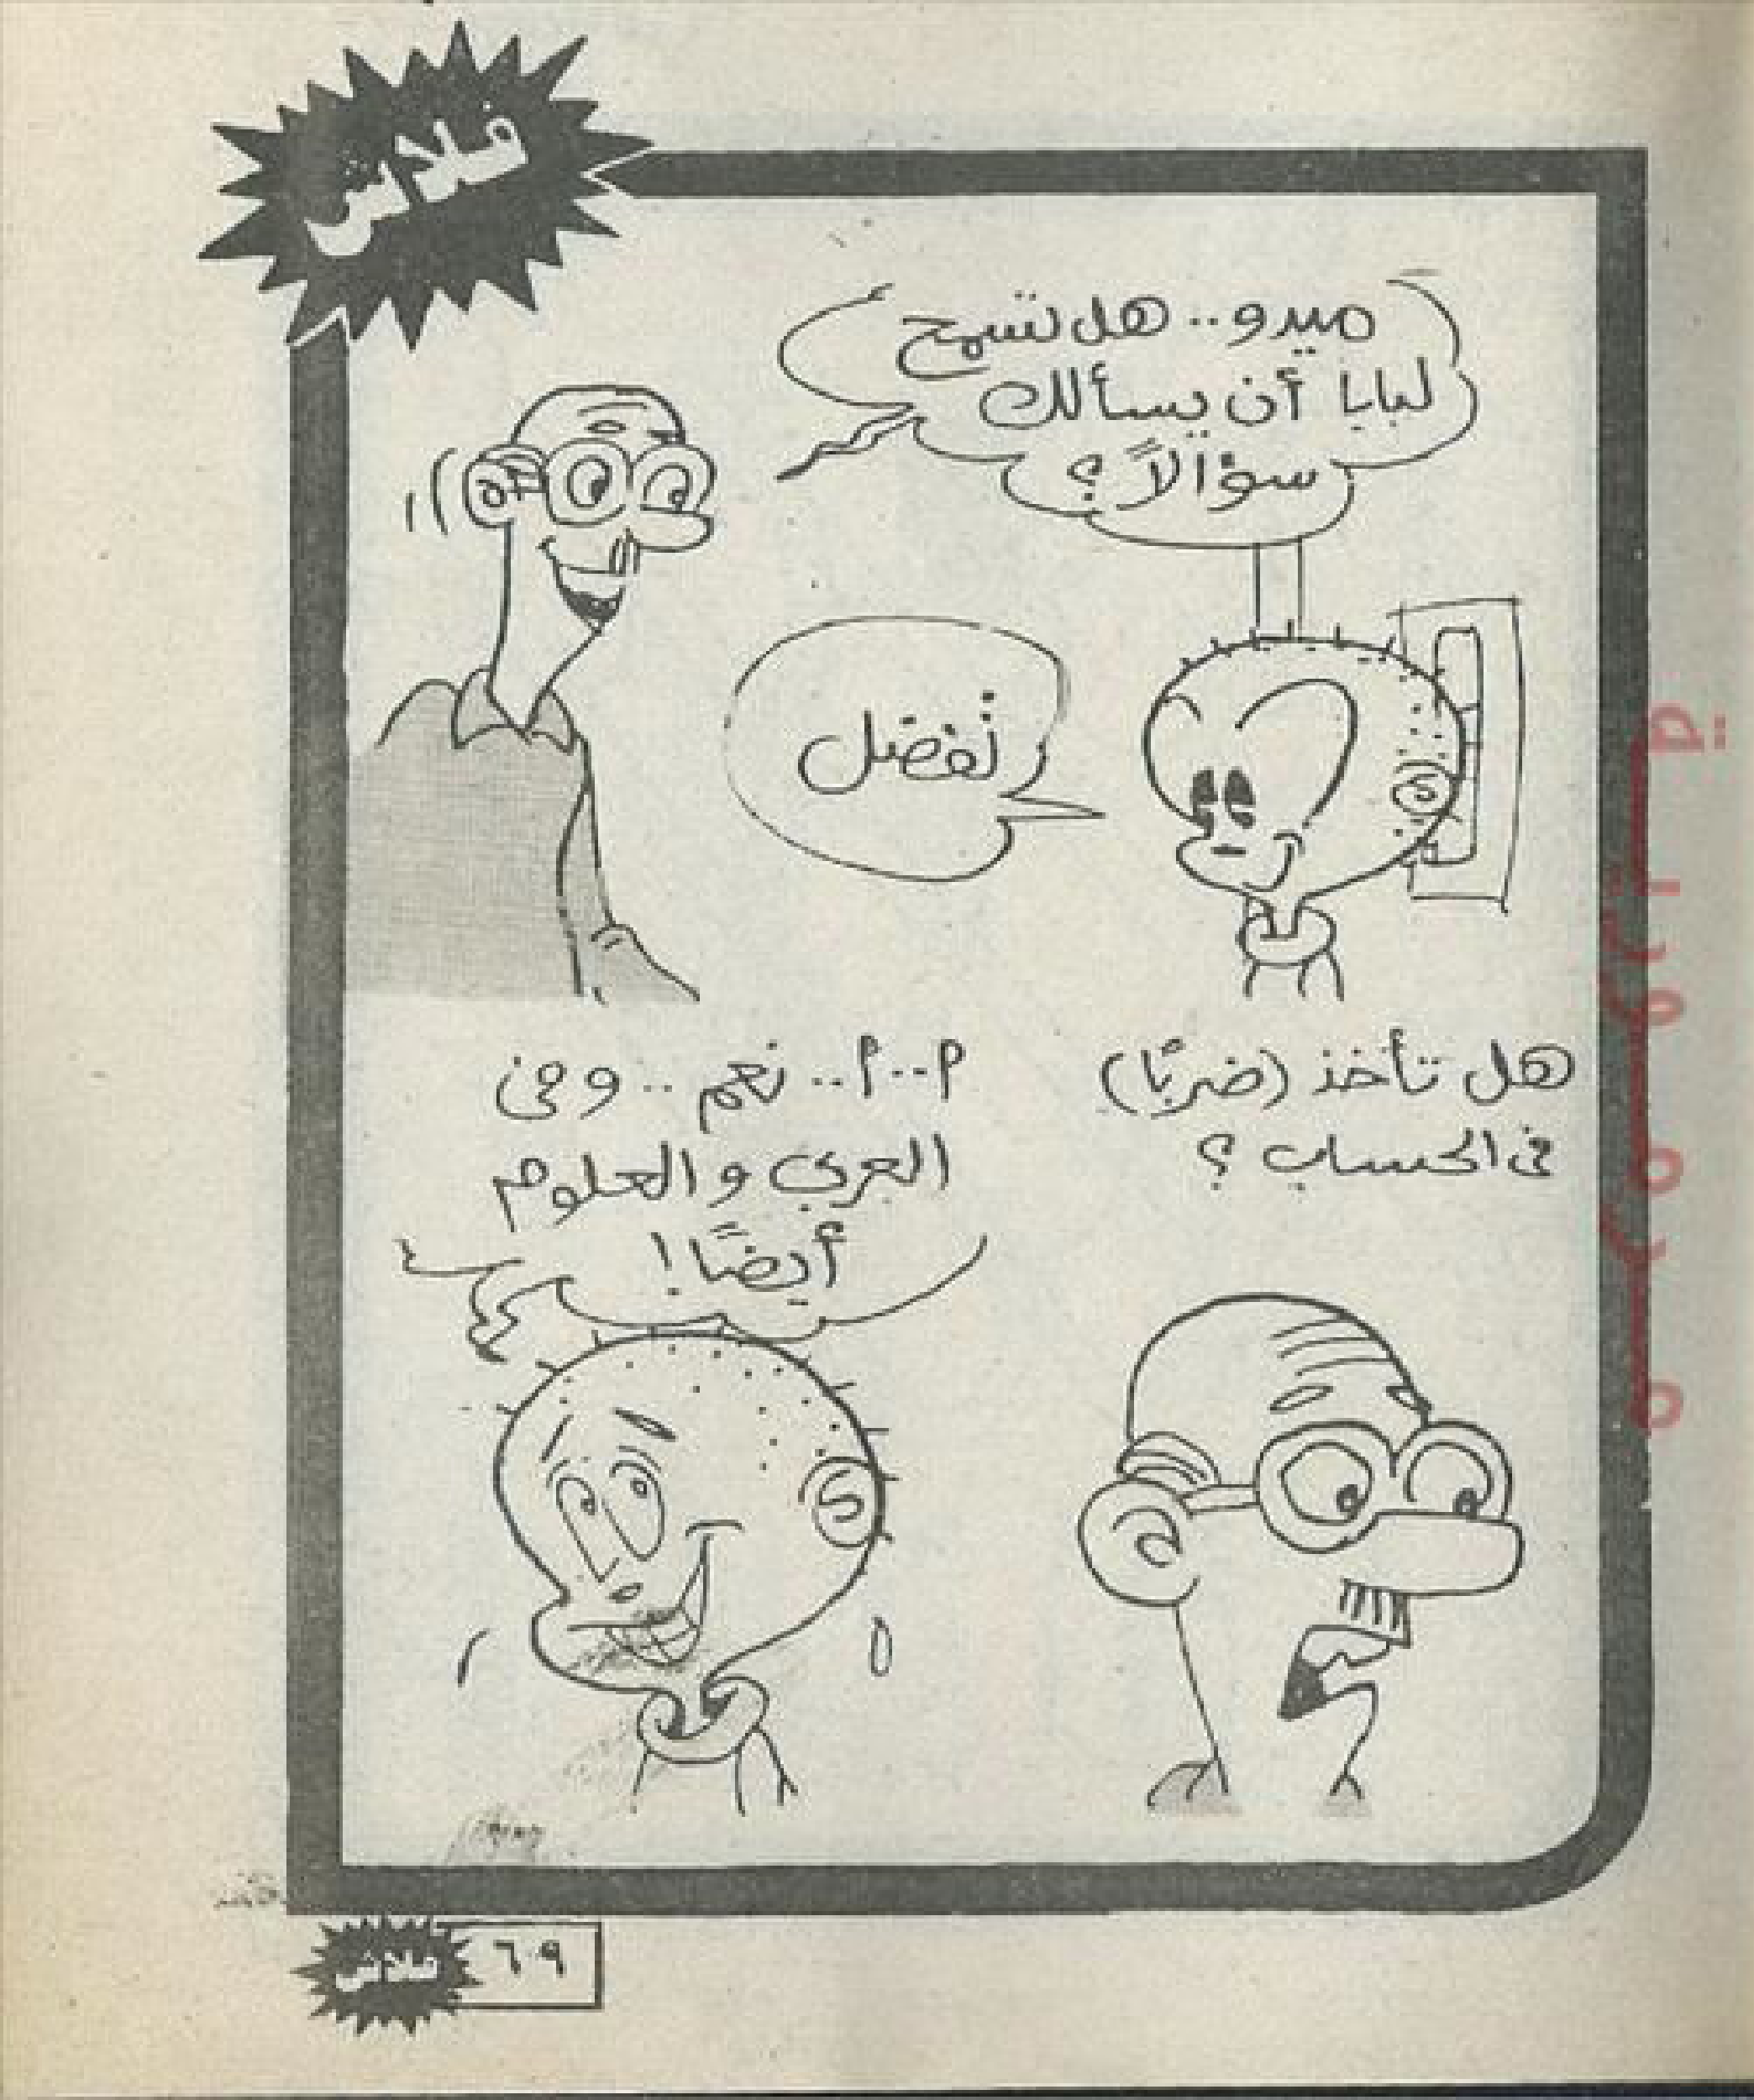 فلاش
ميدو.. هل تسمح
لبابا أن يسألك
سؤالاً؟
تفضل
هل تأخذ (ضربًا)
فى الحساب؟
م..م.. نعم.. وفى
العربى والعلوم
أيضًا!
٦٩
فلاش